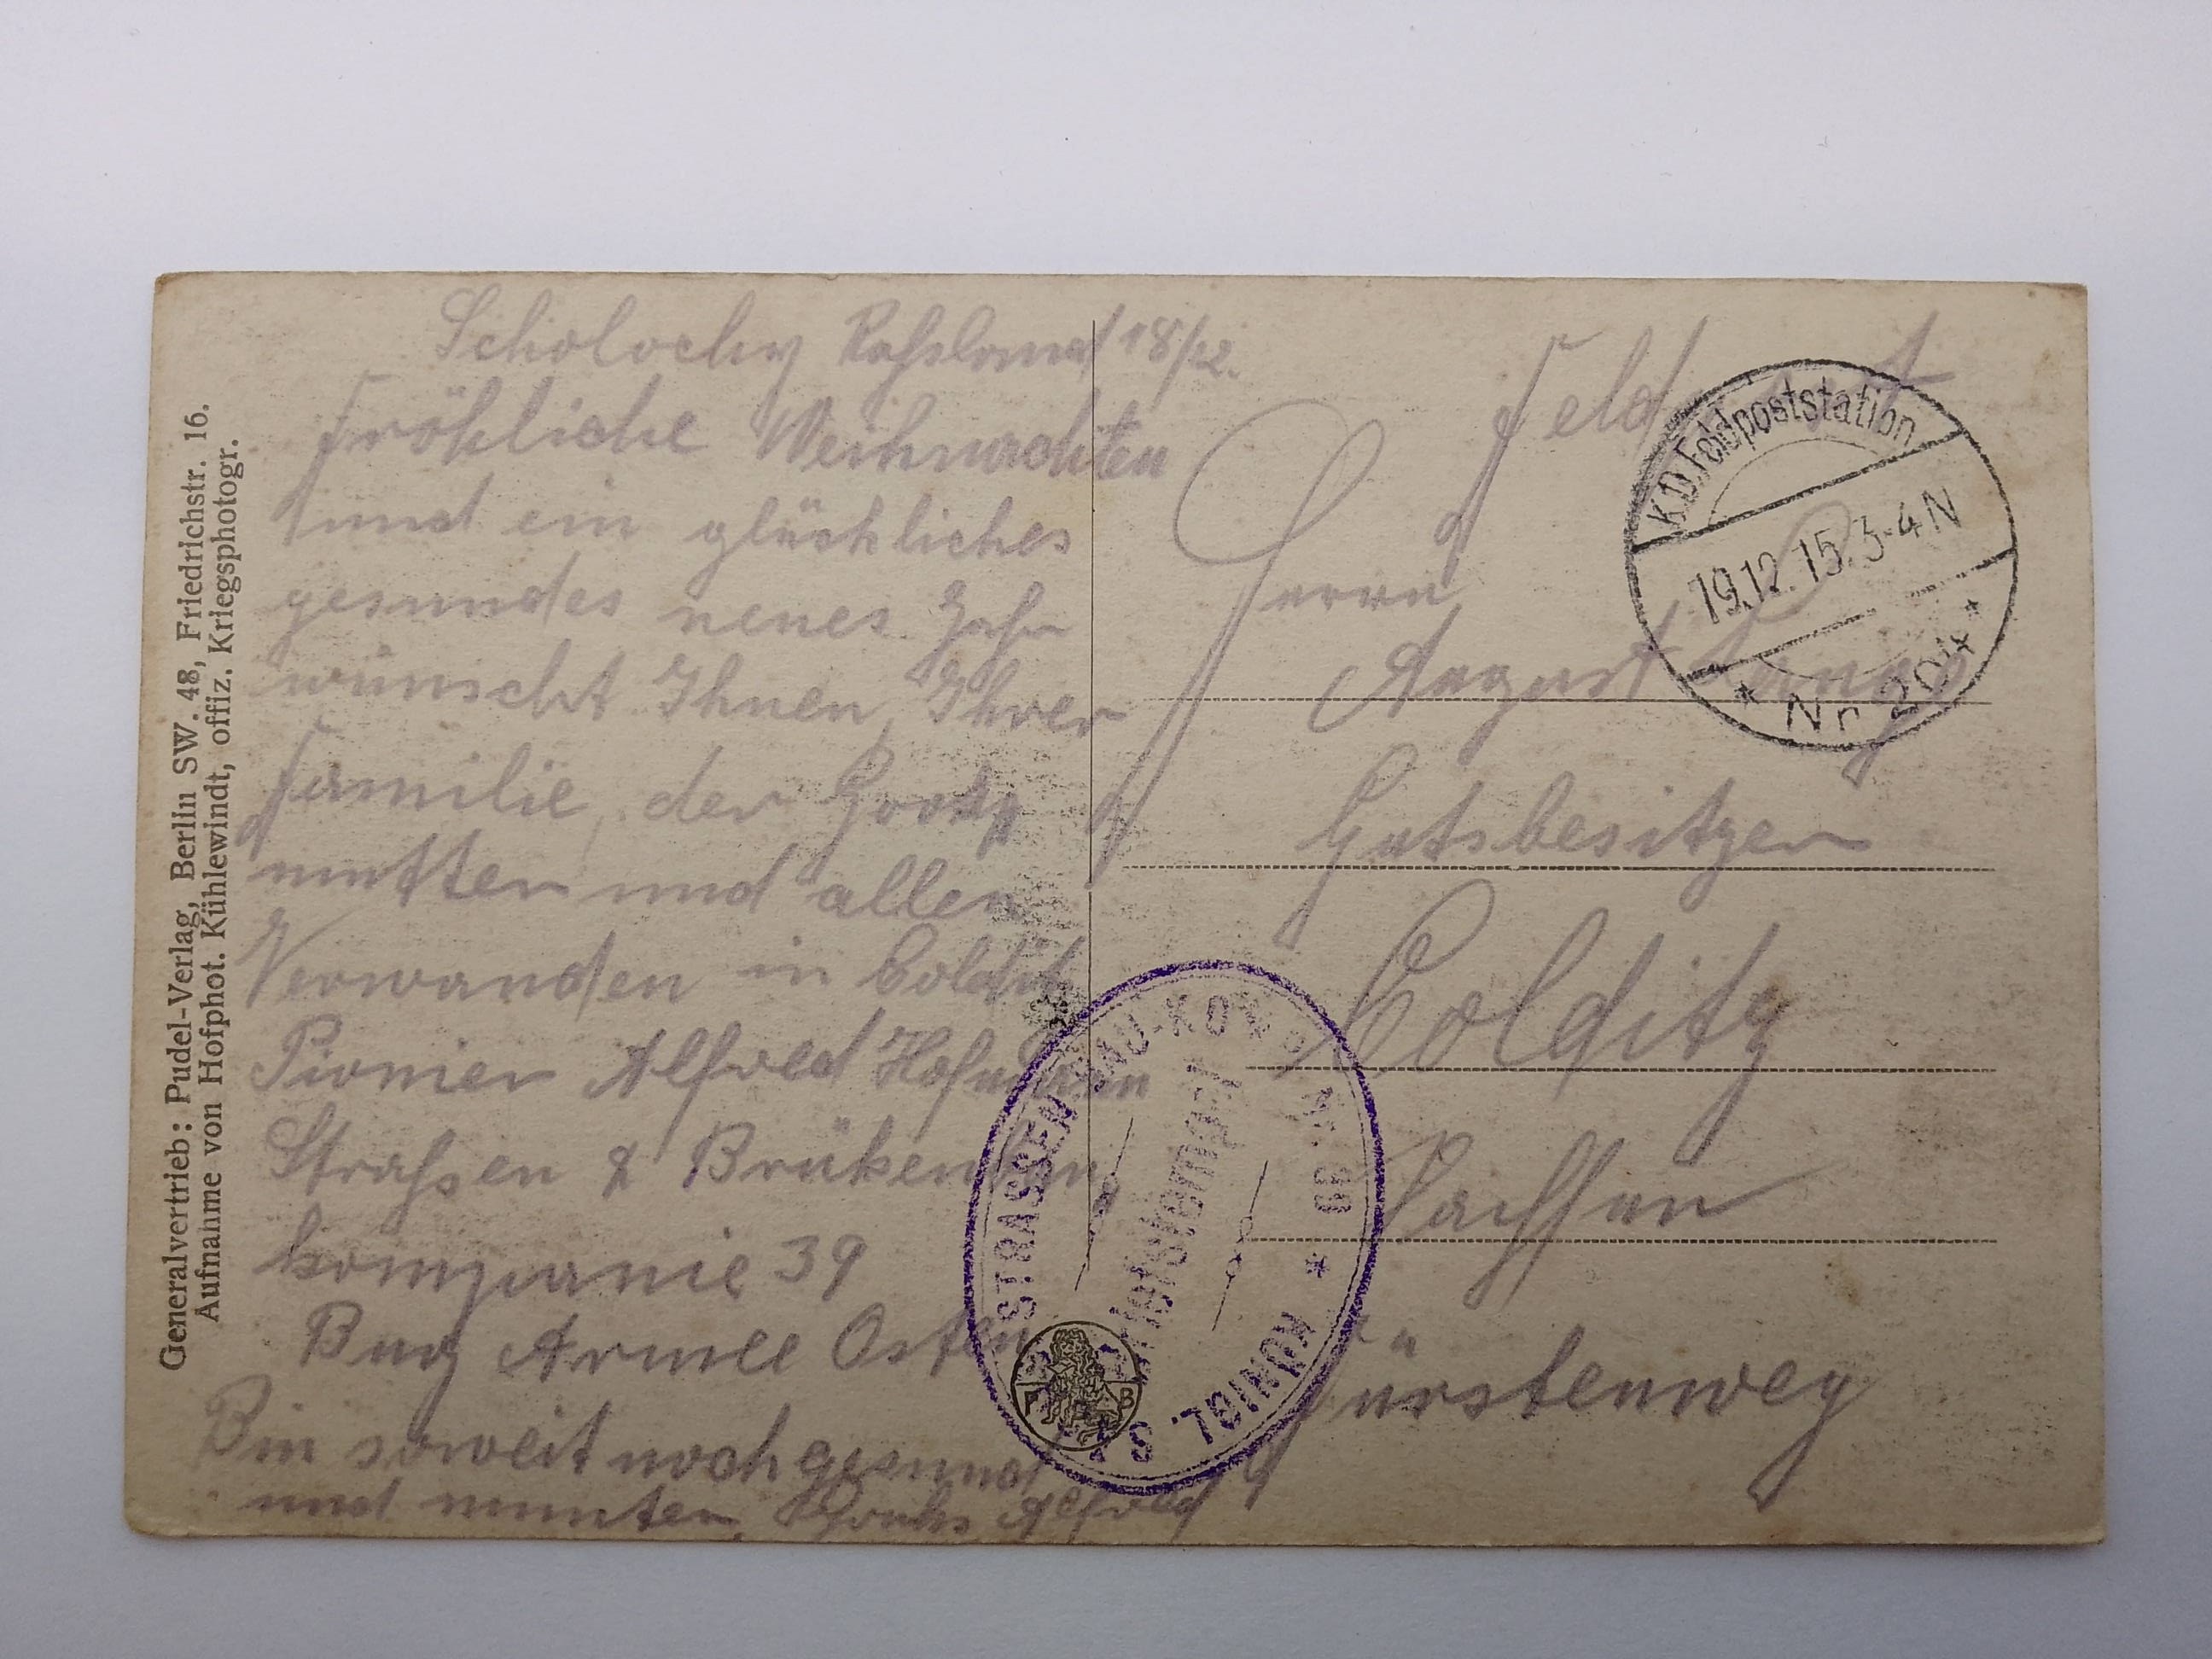 Generalvertrieb: Pudel-Verlag, Berlin SW. 48, Friedrichstr. 16.
Aufnahme von Hofphot. Kühlewindt, offiz. Kriegsphotogr.
Fröhliche Weihnachten
und ein glückliches
gesundes neues Jahr
wünscht Ihnen, Ihrer
Familie, der Großß
mutter und allen
Verwanden in Colditz
Pionier Alfred Hofmann
Straßen & Brükenbau
kompanie 39
Bug Armee Osten
Bin soweit noch gesund
und munter. Alfred
Feldpost
Herrn
August Lange
Gutsbesitzer
Colditz
Sachsen
Fürstenweg
K.D. Feldpoststation
19.12.15. 3-4N
* Nr 204 *
STRASSEN
* KÖNIGL. SÄ
Briefstempel
P B